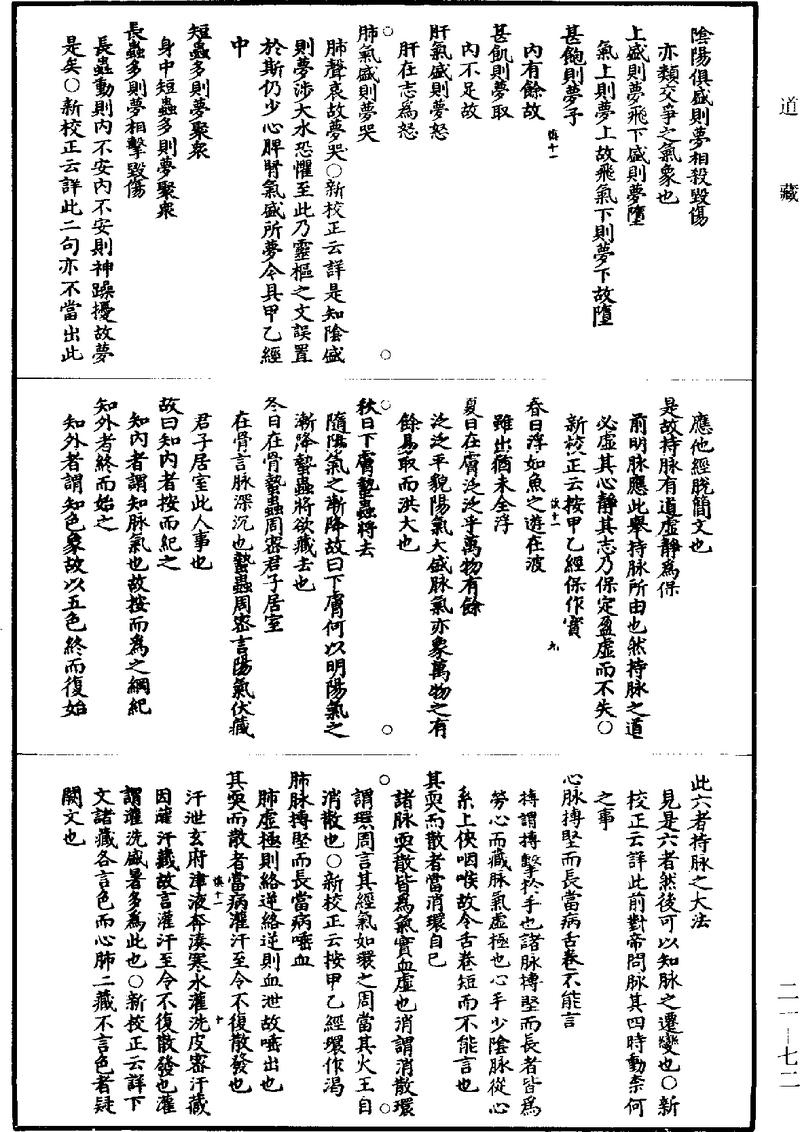 道藏
陰陽俱盛則夢相殺毀傷
亦類交爭之氣象也
上盛則夢飛下盛則夢墮
氣上則夢上故飛氣下則夢下故墮
甚飽則夢予
內有餘故
慎十一
甚飢則夢取
內不足故
肝氣盛則夢怒
肝在志為怒
肺氣盛則夢哭
肺聲哀故夢哭○新校正云詳是知陰盛
則夢涉大水恐懼至此乃靈樞之文誤置
於斯仍少心脾腎氣盛所夢今具甲乙經
中
短蟲多則夢聚衆
身中短蟲多則夢聚衆
長蟲多則夢相擊毀傷
長蟲動則內不安內不安則神躁擾故夢
是矣○新校正云詳此二句亦不當出此
應他經脫簡文也
是故持脉有道虛靜為保
前明脉應此舉持脉所由也然持脉之道
必虛其心靜其志乃保定盈虛而不失○
新校正云按甲乙經保作寶
春日浮如魚之遊在波
慎十一
九
雖出猶未全浮
夏日在膚泛泛乎萬物有餘
泛泛平貌陽氣大盛脉氣亦象萬物之有
餘易取而洪大也
秋日下膚蟄蟲將去
隨陽氣之漸降故曰下膚何以明陽氣之
漸降蟄蟲將欲藏去也
冬日在骨蟄蟲周密君子居室
在骨言脉深沉也蟄蟲周密言陽氣伏藏
君子居室此人事也
故曰知內者按而紀之
知內者謂知脉氣也故按而為之綱紀
知外者終而始之
知外者謂知色象故以五色終而復始
此六者持脉之大法
見是六者然後可以知脉之遷變也○新
校正云詳此前對帝問脉其四時動柰何
之事
心脉搏堅而長當病舌卷不能言
搏謂搏擊於手也諸脉搏堅而長者皆為
勞心而藏脉氣虛極也心手少陰脉從心
系上俠咽喉故令舌卷短而不能言也
其耎而散者當消環自已
諸脉耎散皆為氣實血虛也消謂消散環
謂環周言其經氣如環之周當其火王自
消散也○新校正云按甲乙經環作渴
肺脉搏堅而長當病唾血
肺虛極則絡逆絡逆則血泄故唾出也
其耎而散者當病灌汗至令不復散發也
慎十一
十
汗泄玄府津液奔湊寒水灌洗皮密汗藏
因灌汗藏故言灌汗至令不復散發也灌
謂灌洗盛暑多為此也○新校正云詳下
文諸藏各言色而心肺二藏不言色者疑
闕文也
二一—七二